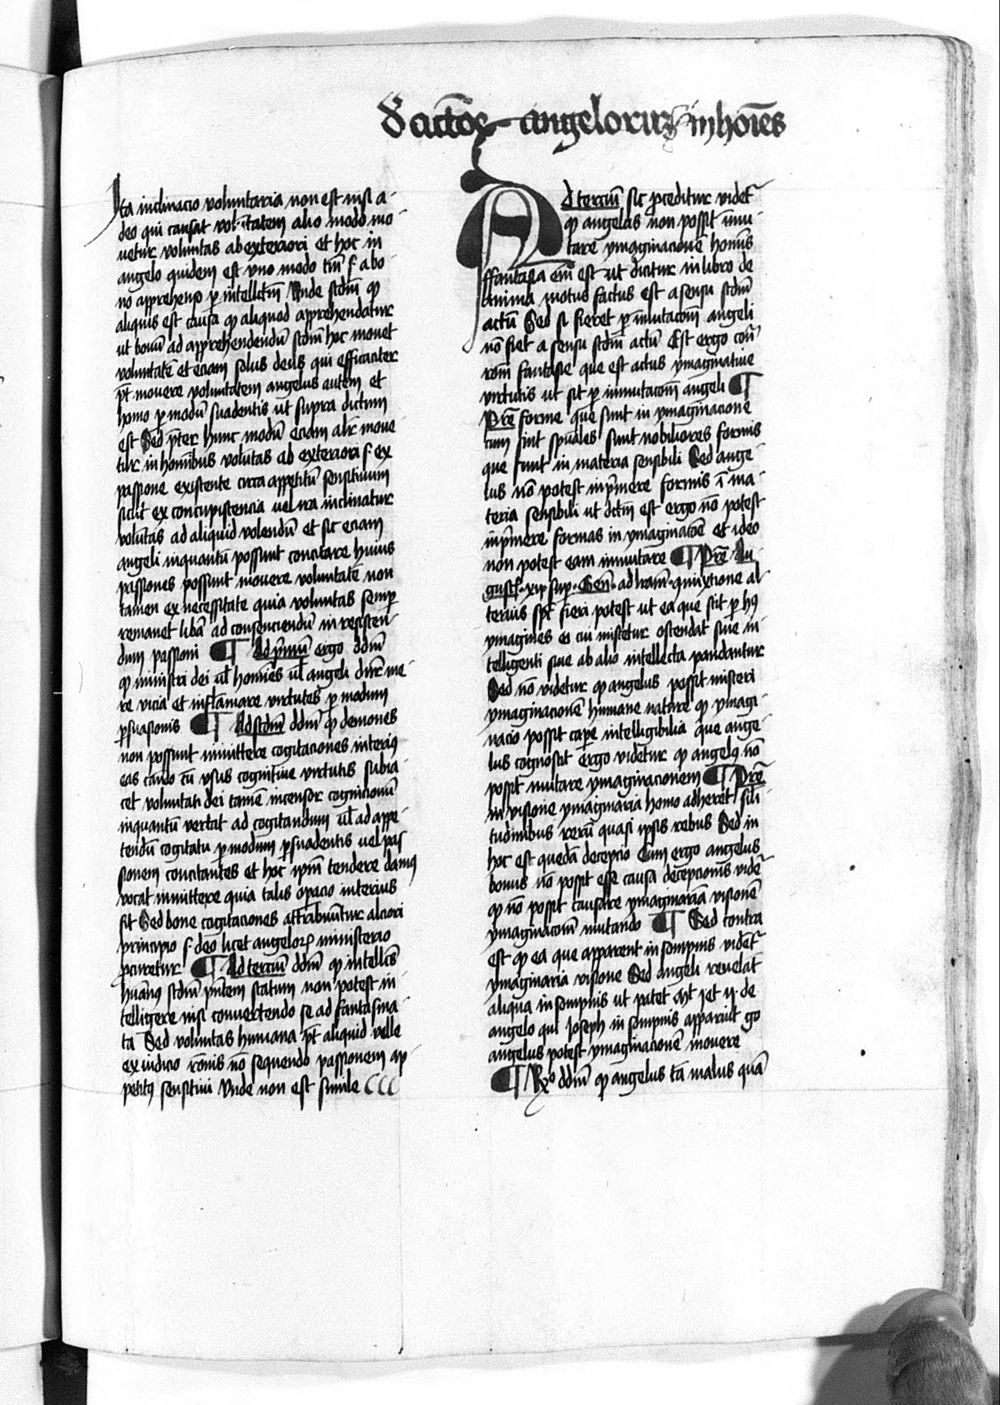 De actioē angelorum in hoīes
Ita inclinacio voluntaria non est nisi a
deo qui causat voluntatem alio modo mo
uetur voluntas ab exteriori et hoc in
angelo quidem est vno modo tm̄ s. a bo
no apprehenso ꝑ intellctm̄ Vnde scdm̄ ꝙ
aliquis est causa ꝙ aliquod apprehendatur
ut bonū ad apprehendendū scdm̄ hoc mouet
voluntatē et eciam solus deus qui efficaciter
pt̄ mouere voluntatem angelus autem et
homo ꝑ modū suadentis ut supra dictum
est Sed p̄ter hunc modū eciam alr̄ moue
tur in hominibus volūtas ab exteriori s. ex
passione existente circa appetitū sensitiuum
sicut ex concupiscencia uel ira inclinatur
volūtas ad aliquid volendū et sic eciam
angeli inquantū possunt concitare huius
passiones possunt mouere voluntatē non
tamen ex necessitate quia voluntas semꝑ
remanet libā ad consenciendū ul̄ resisten
dum passioni ¶ Ad p̄mum ergo dd̄m
ꝙ ministri dei ul̄ homīes ul̄ angeli dn̄r mo
re vicia et inflamare virtutes ꝑ modum
ꝑsuasionis ¶ Ad scdm̄ dd̄m ꝙ demones
non possunt inmittere cogitaciones interiꝰ
eas causādo cū vsus cognitiue virtutis subia
cet voluntati dei tamē incensor cognicionum
inquantū vertat ad cogitandum ul̄ ad appe
tendū cogitatū ꝑ modum ꝑsuadentis uel pas
sionem concitantes et hoc ip̄m tendere damꝰ
vocat inmittere quia talis oꝑacio interius
fit Sed bone cogitaciones attribuuntur alciori
principio s. deo licet angeloꝝ ministerio
ꝓcuretur ¶ Ad tercium dd̄m ꝙ intellcs̄
huānꝰ scdm̄ pn̄tem statum non potest in
telligere nisi conuertendo se ad fantasma
ta Sed voluntas humana pt̄ aliquid velle
ex iudicio rōnis nō sequendo passionem ap
petitꝰ sensitiui Vnde non est simile
Ad terciū sic ꝓceditur videt̄
ꝙ angelus non possit inmu
tare ymaginacionē homīs
ffantasia enī est ut dicitur in libro de
anima motus factus est a sensu scdm̄
actū Sed si fieret ꝑ inmutacōm angeli
nō fiet a sensu scdm̄ actū Est ergo con̄
rōm̄ fantasie que est actus ymaginatiue
virtutis ut sit ꝑ inmutacōm angeli ¶
Pr̄e forme que sunt in ymaginacione
cum sint spūales sunt nobiliores formis
que sunt in materia sensibili Sed ange
lus nō potest inp̄mere formis ī ma
teria sensibili ut dctm̄ est ergo nō potest
inp̄mere formas in ymaginacōe et ideo
non potest eam inmutare ¶ Pr̄e Au
gust. xij sup. Gen̄. ad lram̄ quixtione al
terius spc̄ fieri potest ut ea que scit ꝑ hꝰ
ymagines ei cui miscetur ostendat siue in
telligenti siue ab alio intellecta pandantur
Sed nō videtur ꝙ angelus possit misceri
ymaginacionē humane nature ꝙ ymagi
nacio possit caꝑe intelligibilia que ange
lus cognoscit ergo videtur ꝙ angelꝰ nō
possit mutare ymaginacionem ¶ Pr̄e
in visione ymaginaria homo adheret sili
tudinibus rerū quasi ipsis rebus Sed in
hoc est quedā decepcio Cum ergo angelus
bonus nō possit esse causa decepcionis vide
ꝙ nō possit causare ymaginariā visionē
ymaginacōm mutando ¶ Sed contra
est ꝙ ea que apparent in sompnis videt̄
ymaginaria visione Sed angeli reuelāt
aliqua in sompnis ut patet mt̄ i et ij de
angelo qui Joseph in sompnis apparuit go
angelus potest ymaginacionē mouere
¶ Rꝰ dd̄m ꝙ angelus tā malus quā